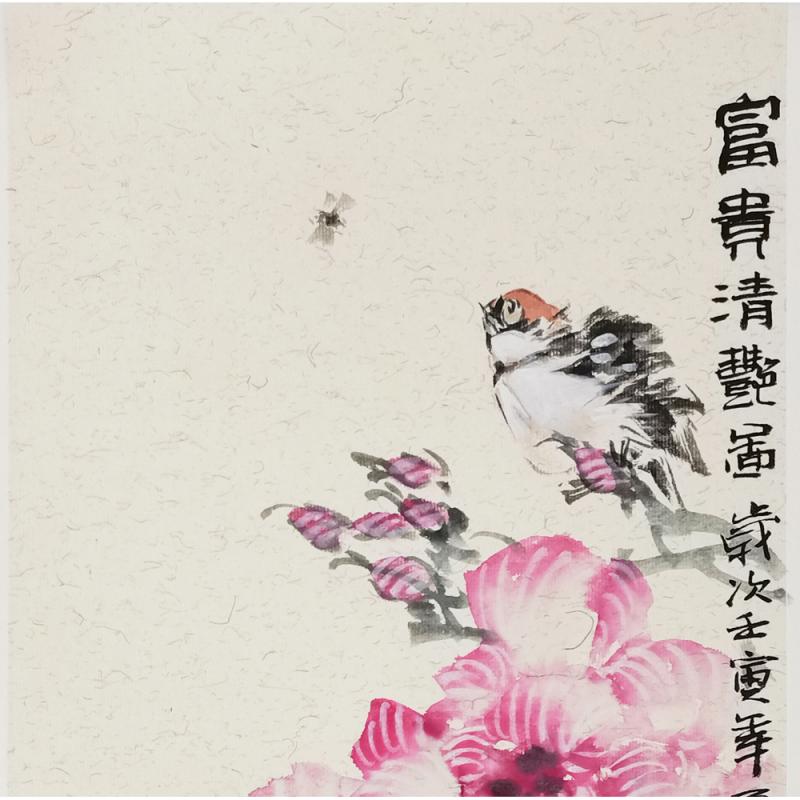 富貴清艷啚歲次壬寅年